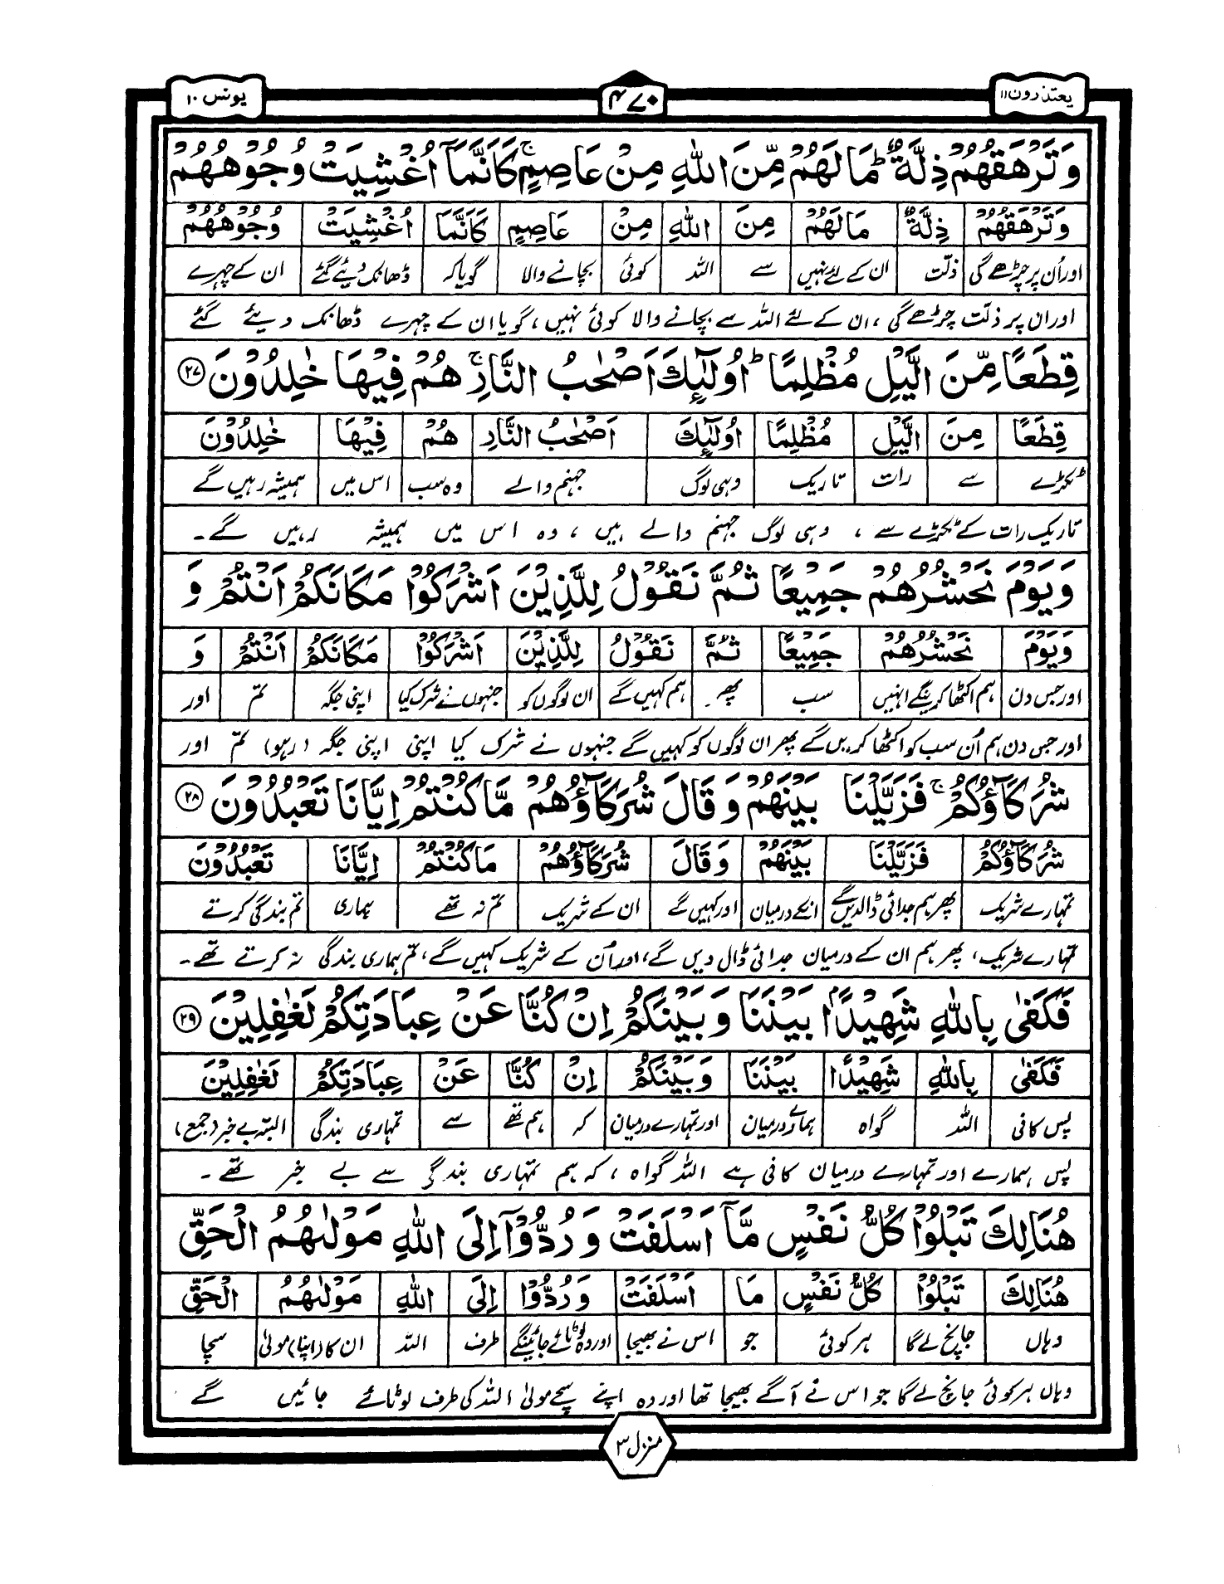 یعتذرون ۱۱
۴۷۰
یونس ۱۰
وَتَرْهَقُهُمْ ذِلَّةٌ ؕ مَا لَهُمْ مِّنَ اللّٰهِ مِنْ عَاصِمٍ ۚ كَاَنَّمَاۤ اُغْشِيَتْ وُجُوْهُهُمْ
وَتَرْهَقُهُمْ ذِلَّةٌ مَا لَهُمْ مِنَ اللّٰهِ مِنْ عَاصِمٍ كَاَنَّمَا اُغْشِيَتْ وُجُوْهُهُمْ
اور ان پر چڑھے گی ذلّت ان کے لئے نہیں سے اللہ کوئی بچانے والا گویا کہ ڈھانک دیئے گئے ان کے چہرے
اور ان پر ذلت چڑھے گی ، ان کے لئے اللہ سے بچانے والا کوئی نہیں ، گویا ان کے چہرے ڈھانک دیئے گئے
قِطَعًا مِّنَ الَّيْلِ مُظْلِمًا ؕ اُولٰٓئِكَ اَصْحٰبُ النَّارِ ۚ هُمْ فِيْهَا خٰلِدُوْنَ ۝۲۷
قِطَعًا مِنَ الَّيْلِ مُظْلِمًا اُولٰٓئِكَ اَصْحٰبُ النَّارِ هُمْ فِيْهَا خٰلِدُوْنَ
ٹکڑے سے رات تاریک وہی لوگ جہنم والے وہ سب اس میں ہمیشہ رہیں گے
تاریک رات کے ٹکڑے سے ، وہی لوگ جہنم والے ہیں ، وہ اس میں ہمیشہ رہیں گے ۔
وَيَوْمَ نَحْشُرُهُمْ جَمِيْعًا ثُمَّ نَقُوْلُ لِلَّذِيْنَ اَشْرَكُوْا مَكَانَكُمْ اَنْتُمْ وَ
وَيَوْمَ نَحْشُرُهُمْ جَمِيْعًا ثُمَّ نَقُوْلُ لِلَّذِيْنَ اَشْرَكُوْا مَكَانَكُمْ اَنْتُمْ وَ
اور جس دن ہم اکٹھا کرینگے انہیں سب پھر ہم کہیں گے ان لوگوں کو جنہوں نے شرک کیا اپنی جگہ تم اور
اور جس دن ہم اُن سب کو اکٹھا کریں گے پھر ان لوگوں کو کہیں گے جنہوں نے شرک کیا اپنی اپنی جگہ (رہو) تم اور
شُرَكَآؤُكُمْ ۚ فَزَيَّلْنَا بَيْنَهُمْ وَقَالَ شُرَكَآؤُهُمْ مَّا كُنْتُمْ اِيَّانَا تَعْبُدُوْنَ ۝۲۸
شُرَكَآؤُكُمْ فَزَيَّلْنَا بَيْنَهُمْ وَقَالَ شُرَكَآؤُهُمْ مَا كُنْتُمْ اِيَّانَا تَعْبُدُوْنَ
تمہارے شریک پھر ہم جدائی ڈالدیں گے انکے درمیان اور کہیں گے ان کے شریک تم نہ تھے ہماری تم بندگی کرتے
تمہارے شریک ، پھر ہم ان کے درمیان جدائی ڈال دیں گے ، اور اُن کے شریک کہیں گے ، تم ہماری بندگی نہ کرتے تھے ۔
فَكَفٰى بِاللّٰهِ شَهِيْدًۢا بَيْنَنَا وَبَيْنَكُمْ اِنْ كُنَّا عَنْ عِبَادَتِكُمْ لَغٰفِلِيْنَ ۝۲۹
فَكَفٰى بِاللّٰهِ شَهِيْدًا بَيْنَنَا وَبَيْنَكُمْ اِنْ كُنَّا عَنْ عِبَادَتِكُمْ لَغٰفِلِيْنَ
پس کافی اللہ گواہ ہمارے درمیان اور تمہارے درمیان کہ ہم تھے سے تمہاری بندگی البتہ بے خبر (جمع)
پس ہمارے اور تمہارے درمیان کافی ہے اللہ گواہ ، کہ ہم تمہاری بندگی سے بے خبر تھے ۔
هُنَالِكَ تَبْلُوْا كُلُّ نَفْسٍ مَّاۤ اَسْلَفَتْ وَرُدُّوْۤا اِلَى اللّٰهِ مَوْلٰىهُمُ الْحَقِّ
هُنَالِكَ تَبْلُوْا كُلُّ نَفْسٍ مَا اَسْلَفَتْ وَرُدُّوْا اِلَى اللّٰهِ مَوْلٰىهُمُ الْحَقِّ
وہاں جانچ لے گا ہر کوئی جو اس نے بھیجا اور وہ لوٹائے جائینگے طرف اللہ ان کا (اپنا) مولیٰ سچا
وہاں ہر کوئی جانچ لے گا جو اس نے آگے بھیجا تھا اور وہ اپنے سچے مولیٰ اللہ کی طرف لوٹائے جائیں گے
منزل ۳